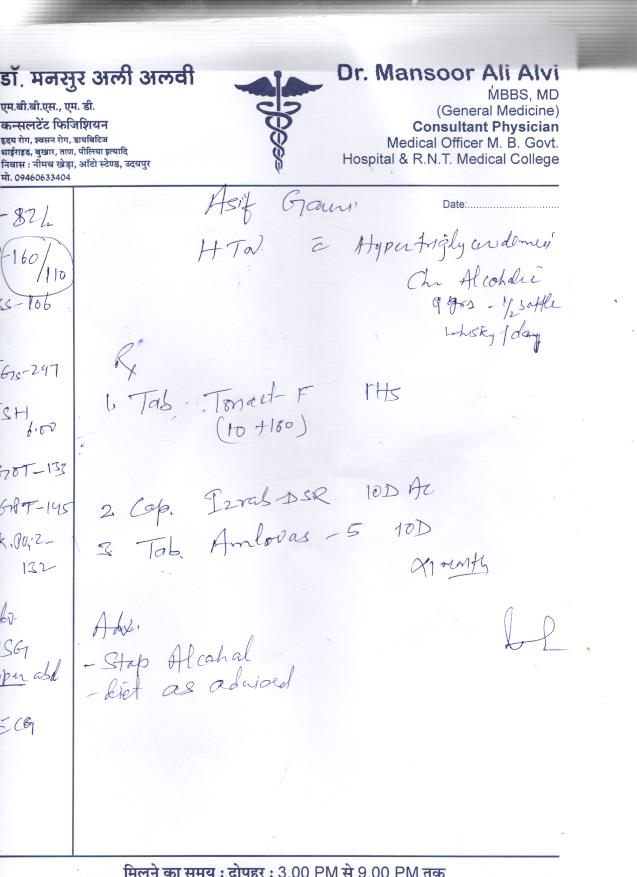 डॉ. मनसुर अली अलवी
एम.बी.बी.एस., एम. डी.
कन्सलटेंट फिजिशियन
हृदय रोग, श्वसन रोग, डायबिटिज
थाईराइड, बुखार, ताण, पीलिया इत्यादि
निवास : नीमच खेड़ा, ऑटो स्टेण्ड, उदयपुर
मो. 09460633404
Dr. Mansoor Ali Alvi
MBBS, MD
(General Medicine)
Consultant Physician
Medical Officer M. B. Govt.
Hospital & R.N.T. Medical College
Date:
Asif Gauri
HTN c Hypertriglyceridemia
Chr Alcoholic
9 yrs - 1/2 bottle
whisky / day
-82/
-160/110
-106
-247
SH
6.00
GOT-133
GPT-145
132
SG
per abd
ECG
Rx
1. Tab Tonact-F 1HS
(10+160)
2 Cap. Izrab-DSR 1OD AC
3 Tab. Amlovas-5 1OD
x1 month
Adv.
- Stop Alcohal
- diet as advised
मिलने का समय : दोपहर : 3.00 PM से 9.00 PM तक